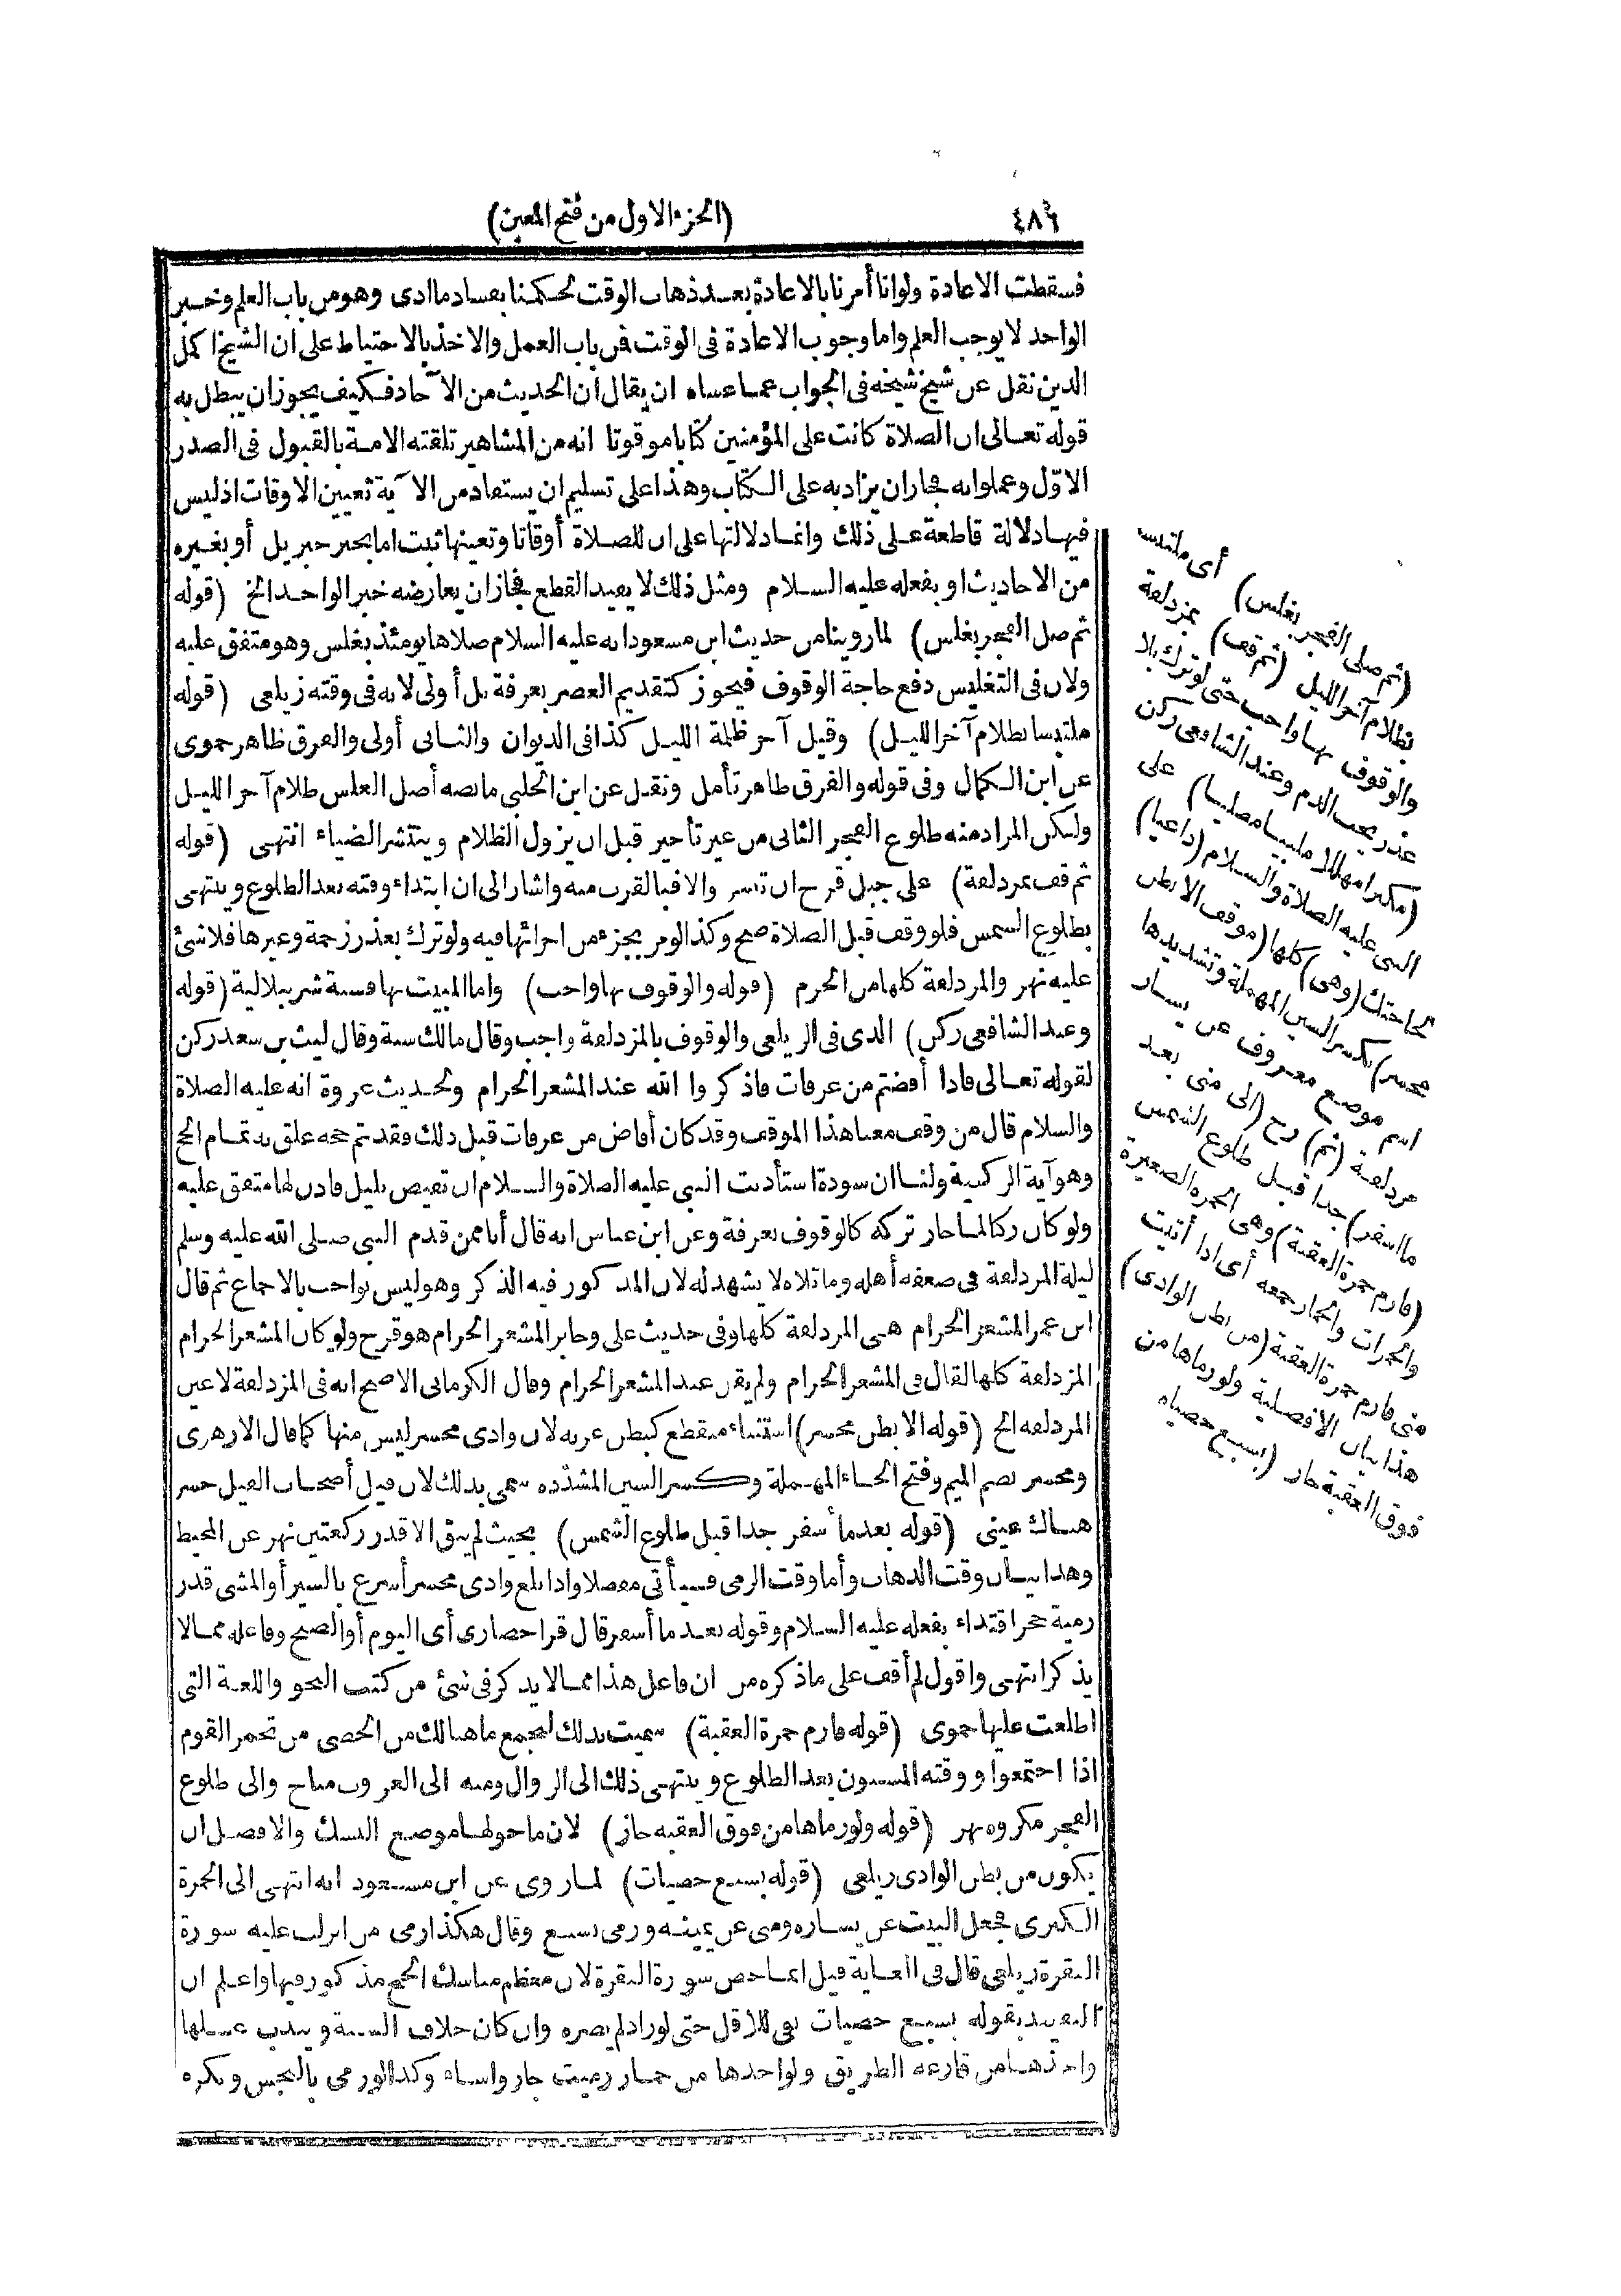 ٤٨٦
(الجزء الاول من فتح المعين)
فسقطت الاعادة ولو انا أمرنا بالاعادة بعد ذهاب الوقت لحكمنا بفساد ما ادى وهو من باب العلم وخبر
الواحد لا يوجب العلم واما وجوب الاعادة فى الوقت فمن باب العمل والاخذ بالاحتياط على ان الشيخ اكمل
الدين نقل عن شيخ شيخه فى الجواب عما عساه ان يقال أن الحديث من الآحاد فكيف يجوز ان يبطل به
قوله تعالى ان الصلاة كانت على المؤمنين كتابا موقوتا انه من المشاهير تلقته الامة بالقبول فى الصدر
الاوّل وعملوا به فجاز ان يزاد به على الكتاب وهذا على تسليم ان يستفاد من الآية تعيين الاوقات اذ ليس
فيها دلالة قاطعة على ذلك وانما دلالتها على ان للصلاة أوقاتا وتعينها ثبت اما بخبر جبريل أو بغيره
من الاحاديث او بفعله عليه السلام ومثل ذلك لا يفيد القطع فجاز ان يعارضه خبر الواحد الخ (قوله
ثم صل الفجر بغلس) لما روينا من حديث ابن مسعود انه عليه السلام صلاها يومئذ بغلس وهو متفق عليه
ولان فى التغليس دفع حاجة الوقوف فيجوز كتقديم العصر بعرفة بل أولى لانه فى وقته زيلعى (قوله
ملتبسا بظلام آخر الليل) وقيل آخر ظلمة الليل كذا فى الديوان والثانى أولى والفرق ظاهر حموى
عن ابن الكمال وفى قوله والفرق ظاهر تأمل ونقل عن ابن الحلبى ما نصه أصل الغلس ظلام آخر الليل
ولكن المراد منه طلوع الفجر الثانى من غير تأخير قبل ان يزول الظلام وينتشر الضياء انتهى (قوله
ثم قف بمزدلفة) على جبل قزح ان تيسر والا فبالقرب منه واشار الى ان ابتداء وقته بعد الطلوع وينتهى
بطلوع الشمس فلو وقف قبل الصلاة صح وكذا لو مر بجزء من اجزائها فيه ولو ترك بعذر زحمة وغيرها فلا شئ
عليه نهر والمزدلفة كلها من الحرم (قوله والوقوف بها واجب) واما المبيت بها فسنة شرنبلالية (قوله
وعند الشافعى ركن) الذى فى الزيلعى والوقوف بالمزدلفة واجب وقال مالك سنة وقال ليث بن سعد ركن
لقوله تعالى فاذا أفضتم من عرفات فاذكروا الله عند المشعر الحرام ولحديث عروة انه عليه الصلاة
والسلام قال من وقف معنا هذا الموقف وقد كان أفاض من عرفات قبل ذلك فقد تم حجه علق به تمام الحج
وهو آية الركنية ولنا ان سودة استأذنت النبى عليه الصلاة والسلام ان تفيض بليل فاذن لها متفق عليه
ولو كان ركنا لما جاز تركه كالوقوف بعرفة وعن ابن عباس انه قال أنا ممن قدم النبى صلى الله عليه وسلم
ليلة المزدلفة فى ضعفة أهله وما تلاه لا يشهد له لان المذكور فيه الذكر وهو ليس بواجب بالاجماع ثم قال
ابن عمر المشعر الحرام هى المزدلفة كلها وفى حديث على وجابر المشعر الحرام هو قزح ولو كان المشعر الحرام
المزدلفة كلها لقال فى المشعر الحرام ولم يقل عند المشعر الحرام وقال الكرمانى الاصح انه فى المزدلفة لا عين
المزدلفة الخ (قوله الا بطن محسر) استثناء منقطع كبطن عرنه لان وادى محسر ليس منها كما قال الازهرى
ومحسر بضم الميم وفتح الحاء المهملة وكسر السين المشدّده سمى بذلك لان فيل أصحاب الفيل حسر
هناك عينى (قوله بعد ما أسفر جدا قبل طلوع الشمس) بحيث لم يبق الا قدر ركعتين نهر عن المحيط
وهذا بيان وقت الذهاب وأما وقت الرمى فسيأتى مفصلا واذا بلغ وادى محسر أسرع بالسير أو المشى قدر
رمية حجر اقتداء بفعله عليه السلام وقوله بعد ما أسفر قال قرا حصارى أى اليوم أو الصبح وفاعله مما لا
يذكر انتهى واقول لم أقف على ما ذكره من ان فاعل هذا مما لا يذكر فى شئ من كتب النحو واللغة التى
اطلعت عليها حموى (قوله فارم جمرة العقبة) سميت بذلك لتجمع ما هنالك من الحصى من تجمر القوم
اذا اجتمعوا ووقته المسنون بعد الطلوع وينتهى ذلك الى الزوال ومنه الى الغروب مباح والى طلوع
الفجر مكروه نهر (قوله ولو رماها من فوق العقبة جاز) لان ما حولها موضع النسك والافضل ان
يكون من بطن الوادى زيلعى (قوله بسبع حصيات) لما روى عن ابن مسعود انه انتهى الى الجمرة
الكبرى فجعل البيت عن يساره ومنى عن يمينه ورمى بسبع وقال هكذا رمى من انزلت عليه سورة
البقرة زيلعى قال فى العناية قيل انما خص سورة البقرة لان معظم مناسك الحج مذكور فيها واعلم ان
التقييد بقوله بسبع حصيات نفى للاقل حتى لو زاد لم يضره وان كان خلاف السنة ويندب غسلها
واخذها من قارعة الطريق ولو اخذها من جمار رميت جاز واساء وكذا لو رمى بالنجس ويكره
(ثم صلى الفجر بغلس) أى ملتبسا
بظلام آخر الليل (ثم قف) بمزدلفة
والوقوف بها واجب حتى لو ترك بلا
عذر يجب الدم وعند الشافعى ركن
(مكبرا مهللا ملبيا مصليا) على
النبى عليه الصلاة والسلام (داعيا)
بحاجتك (وهى) كلها (موقف الا بطن
محسر) بكسر السين المهملة وتشديدها
اسم موضع معروف عن يسار
مزدلفة (ثم) رح (الى منى بعد
ما اسفر) جدا قبل طلوع الشمس
(فارم جمرة العقبة) وهى الجمرة الصغيرة
والجمرات والجمار جمعه أى اذا أتيت
منى فارم جمرة العقبة (من بطن الوادى)
هذا بيان الافضلية ولو رماها من
فوق العقبة جاز (بسبع حصياه